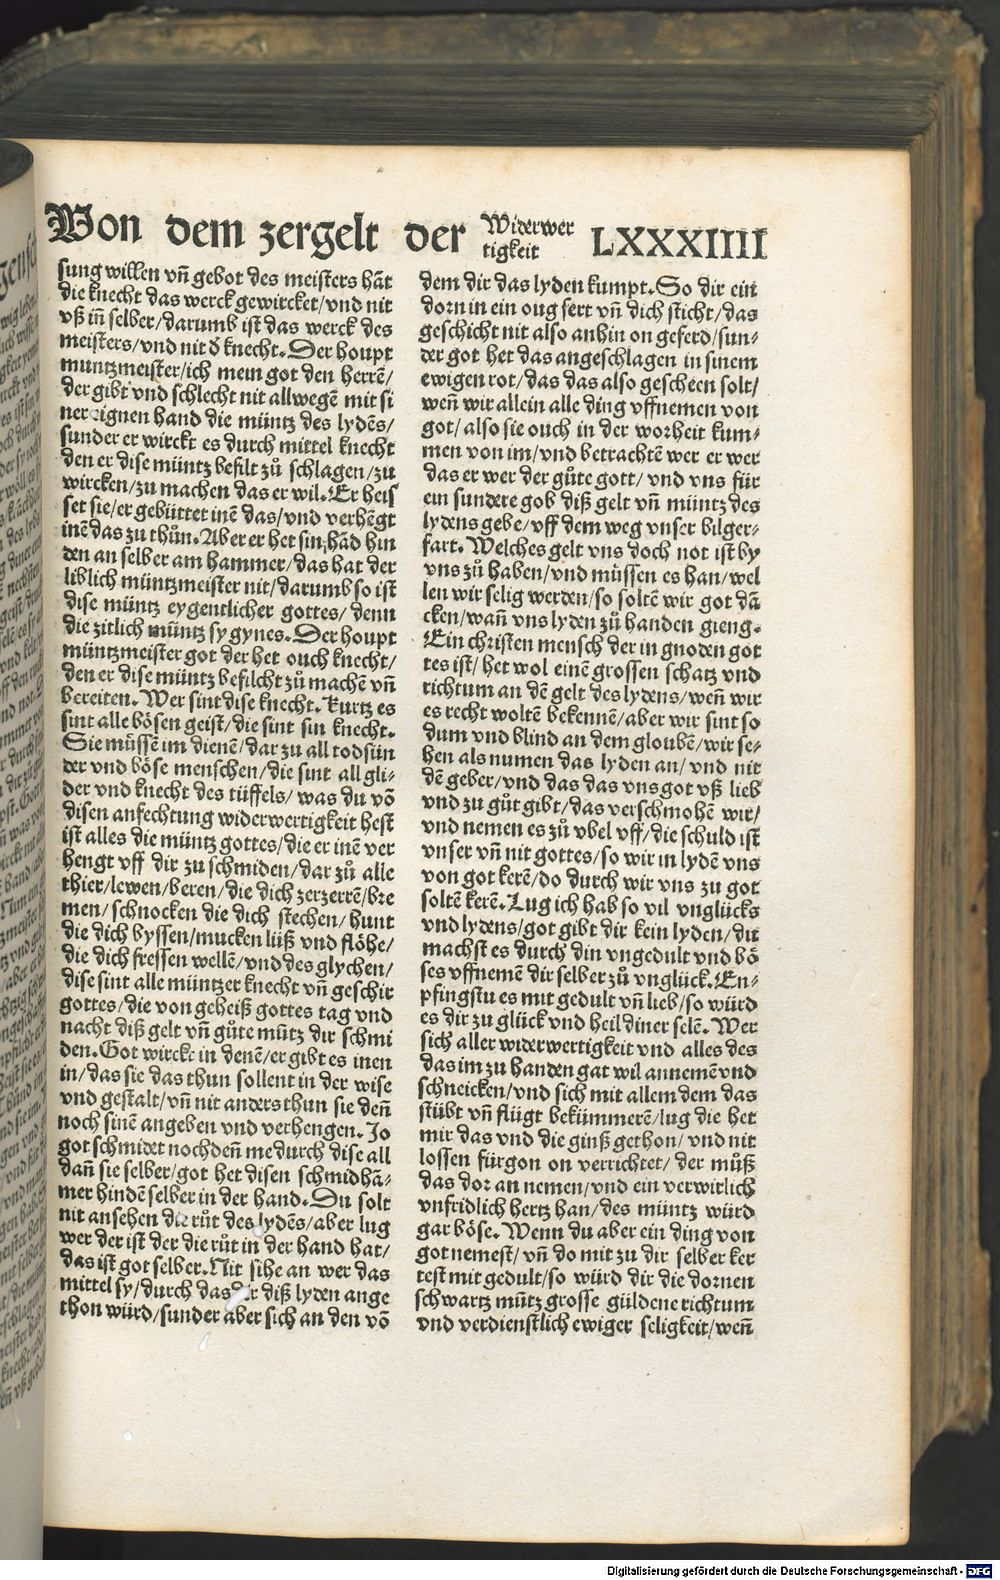 Von dem zergelt der Widerwer
tigkeit LXXXIIII
sung willen vn̄ gebot des meisters hāt
die knecht das werck gewircket/vnd nit
vß in̄ selber/darumb ist das werck des
meisters/vnd nit d̄ knecht. Der houpt
muntzmeister/ich mein got den herrē/
der gibt vnd schlecht nit allwegē mit si
ner eignen hand die müntz des lydēs/
sunder er wirckt es durch mittel knecht
den er dise müntz befilt zů schlagen/zu
wircken/zu machen das er wil. Er heis
set sie/er gebüttet inē das/vnd verhēgt
inē das zu thůn. Aber er het sin hād hin
den an selber am hammer/das hat der
liblich müntzmeister nit/darumb so ist
dise müntz eygentlicher gottes/denn
die zitlich müntz sy gynes. Der houpt
müntzmeister got der het ouch knecht/
den er dise müntz befilcht zů machē vn̄
bereiten. Wer sint dise knecht. Kurtz es
sint alle bösen geist/die sint sin knecht.
Sie müssē im dienē/dar zu all todsün
der vnd böse menschen/die sint all gli-
der vnd knecht des tüffels/was du vō
disen anfechtung widerwertigkeit hest
ist alles die müntz gottes/die er inē ver
hengt vff dir zu schmiden/dar zů alle
thier/lewen/beren/die dich zerzerrē/bre
men/schnocken die dich stechen/hunt
die dich byssen/mucken lüß vnd flöhe/
die dich fressen wellē/vnd des glychen/
dise sint alle müntzer knecht vn̄ geschir
gottes/die von geheiß gottes tag vnd
nacht diß gelt vn̄ gůte müntz dir schmi
den. Got wirckt in denē/er gibt es inen
in/das sie das thun sollent in der wise
vnd gestalt/vn̄ nit anders thun sie den̄
noch sinē angeben vnd verhengen. Jo
got schmidet nochden̄ me durch dise all
dan̄ sie selber/got het disen schmidhā-
mer hindē selber in der hand. Du solt
nit ansehen die růt des lydēs/aber lug
wer der ist der die růt in der hand hat/
das ist got selber. Nit sihe an wer das
mittel sy/durch das dir diß lyden ange
thon würd/sunder aber sich an den vō
dem dir das lyden kumpt. So dir ein
dorn in ein oug fert vn̄ dich sticht/das
geschicht nit also anhin on geferd/sun-
der got het das angeschlagen in sinem
ewigen rot/das das also gescheen solt/
wen̄ wir allein alle ding vffnemen von
got/also sie ouch in der worheit kum-
men von im/vnd betrachtē wer er wer
das er wer der gůte gott/vnd vns für
ein sundere gob diß gelt vn̄ müntz des
lydens gebe/vff dem weg vnser bilger-
fart. Welches gelt vns doch not ist by
vns zů haben/vnd müssen es han/wel
len wir selig werden/so soltē wir got dā
cken/wan̄ vns lyden zů handen gieng.
Ein christen mensch der in gnoden got
tes ist/het wol einē grossen schatz vnd
richtum an dē gelt des lydens/wen̄ wir
es recht woltē bekennē/aber wir sint so
dum vnd blind an dem gloubē/wir se-
hen als numen das lyden an/vnd nit
dē geber/vnd das das vns got vß lieb
vnd zu gůt gibt/das verschmohē wir/
vnd nemen es zů vbel vff/die schuld ist
vnser vn̄ nit gottes/so wir in lydē vns
von got kerē/do durch wir vns zu got
soltē kerē. Lug ich hab so vil vnglücks
vnd lydens/got gibt dir kein lyden/du
machst es durch din vngedult vnd bö
ses vffnemē dir selber zů vnglück. En-
pfingstu es mit gedult vn̄ lieb/so würd
es dir zu glück vnd heil diner selē. Wer
sich aller widerwertigkeit vnd alles des
das im zu handen gat wil annemē vnd
schneicken/vnd sich mit allem dem das
stübt vn̄ flügt bekümmerē/lug die het
mir das vnd die ginß gethon/vnd nit
lossen fürgon on verrichtet/der můß
das dor an nemen/vnd ein verwirlich
vnfridlich hertz han/des müntz würd
gar böse. Wenn du aber ein ding von
got nemest/vn̄ do mit zu dir selber ker
test mit gedult/so würd dir die dornen
schwartz müntz grosse güldene richtum
vnd verdienstlich ewiger seligkeit/wen̄
Digitalisierung gefördert durch die Deutsche Forschungsgemeinschaft - DFG